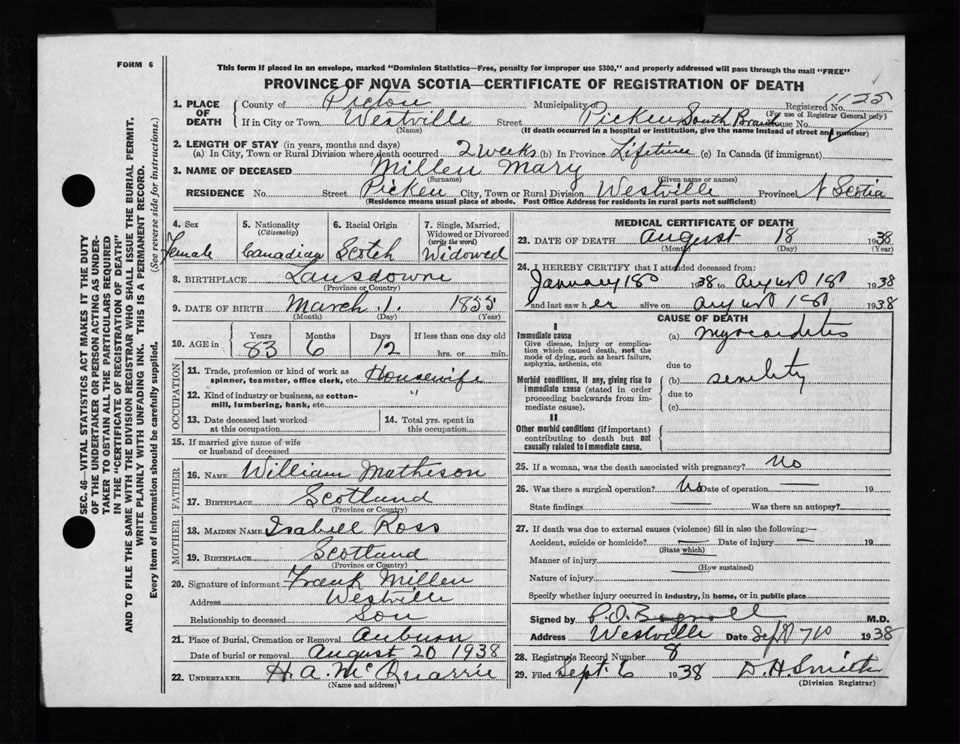 FORM 6
This form if placed in an envelope, marked "Dominion Statistics—Free, penalty for improper use $300," and properly addressed will pass through the mail "FREE"
PROVINCE OF NOVA SCOTIA—CERTIFICATE OF REGISTRATION OF DEATH
1. PLACE OF DEATH
County of Pictou Municipality of Registered No. 1125
(For use of Registrar General only)
If in City or Town Westville Street Picken South Branch House No.
(Name) (If death occurred in a hospital or institution, give the name instead of street and number)
2. LENGTH OF STAY (in years, months and days)
(a) In City, Town or Rural Division where death occurred 2 weeks (b) In Province Lifetime (c) In Canada (if immigrant)
3. NAME OF DECEASED Millen Mary
(Surname) (Given name or names)
RESIDENCE No. Street Picken City, Town or Rural Division Westville Province N Scotia
(Residence means usual place of abode. Post Office Address for residents in rural parts not sufficient)
4. Sex Female
5. Nationality (Citizenship) Canadian
6. Racial Origin Scotch
7. Single, Married, Widowed or Divorced (write the word) Widowed
8. BIRTHPLACE Lansdowne
(Province or Country)
9. DATE OF BIRTH March 1. 1855
(Month) (Day) (Year)
10. AGE in Years 83 Months 6 Days 12 If less than one day old hrs. or min.
OCCUPATION
11. Trade, profession or kind of work as spinner, teamster, office clerk, etc. Housewife
12. Kind of industry or business, as cotton-mill, lumbering, bank, etc. "
13. Date deceased last worked at this occupation
14. Total yrs. spent in this occupation
15. If married give name of wife or husband of deceased
FATHER
16. NAME William Matheson
17. BIRTHPLACE Scotland
(Province or Country)
MOTHER
18. MAIDEN NAME Isabell Ross
19. BIRTHPLACE Scotland
(Province or Country)
20. Signature of informant Frank Millen
Address Westville
Relationship to deceased Son
21. Place of Burial, Cremation or Removal Auburn
Date of burial or removal August 20 1938
22. UNDERTAKER H. A. McQuarrie
(Name and address)
MEDICAL CERTIFICATE OF DEATH
23. DATE OF DEATH August 18 1938
(Month) (Day) (Year)
24. I HEREBY CERTIFY that I attended deceased from:
January 18 1938 to August 18 1938
and last saw her alive on August 18 1938
CAUSE OF DEATH
I
Immediate cause
Give disease, injury or complication which caused death, not the mode of dying, such as heart failure, asphyxia, asthenia, etc
(a) Myocarditis
due to
Morbid conditions, if any, giving rise to immediate cause (stated in order proceeding backwards from immediate cause).
(b) senility
due to
(c)
II
Other morbid conditions (if important) contributing to death but not causally related to immediate cause.
25. If a woman, was the death associated with pregnancy? No
26. Was there a surgical operation? No Date of operation — 19
State findings Was there an autopsy?
27. If death was due to external causes (violence) fill in also the following:—
Accident, suicide or homicide? — Date of injury — 19
(State which)
Manner of injury
(How sustained)
Nature of injury
Specify whether injury occurred in industry, in home, or in public place
Signed by M.D.
Address Westville Date Sept 7 1938
28. Registrar's Record Number 8
29. Filed Sept. 6 1938 D. H. Smith
(Division Registrar)
SEC. 46—VITAL STATISTICS ACT MAKES IT THE DUTY
OF THE UNDERTAKER OR PERSON ACTING AS UNDER-
TAKER TO OBTAIN ALL THE PARTICULARS REQUIRED
IN THE "CERTIFICATE OF REGISTRATION OF DEATH"
AND TO FILE THE SAME WITH THE DIVISION REGISTRAR WHO SHALL ISSUE THE BURIAL PERMIT.
WRITE PLAINLY WITH UNFADING INK. THIS IS A PERMANENT RECORD.
Every item of information should be carefully supplied. (See reverse side for instructions.)